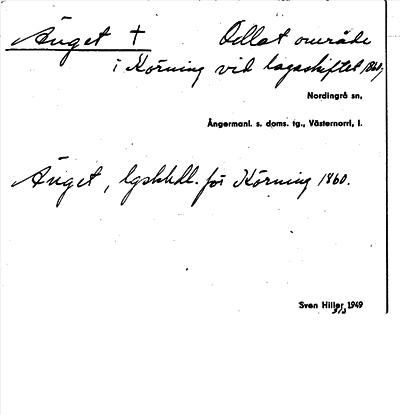 Änget † Odlat område
i Körning vid lagaskiftet 1860,
Nordingrå sn,
Ångermanl. s. doms. tg., Västernorrl, l.
Änget, lgskhdl. för Körning 1860.
Sven Hiller, 1949